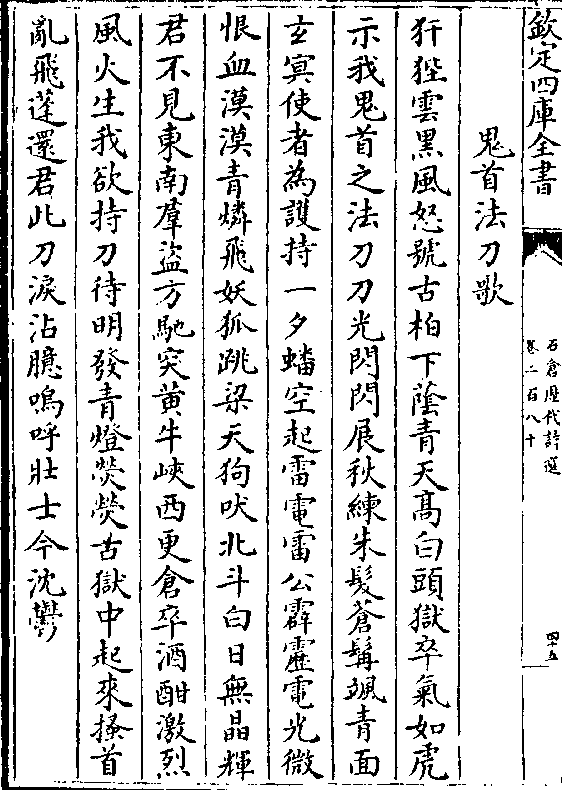 欽定四庫全書
石倉歴代詩選
卷二百八十
四十五
鬼首法刀歌
犴狴雲黑風怒號古柏下蔭青天髙白頭獄卒氣如虎
示我鬼首之法刀刀光閃閃展秋練朱髮蒼髯颯青面
玄冥使者為護持一夕蟠空起雷電雷公霹靂電光微
恨血漠漠青燐飛妖狐跳梁天狗吠北斗白日無晶輝
君不見東南羣盜方馳突黄牛峽西更倉卒酒酣激烈
風火生我欲持刀待明發青燈熒熒古獄中起來搔首
亂飛蓬還君此刀淚沾臆嗚呼壯士今沈鬱